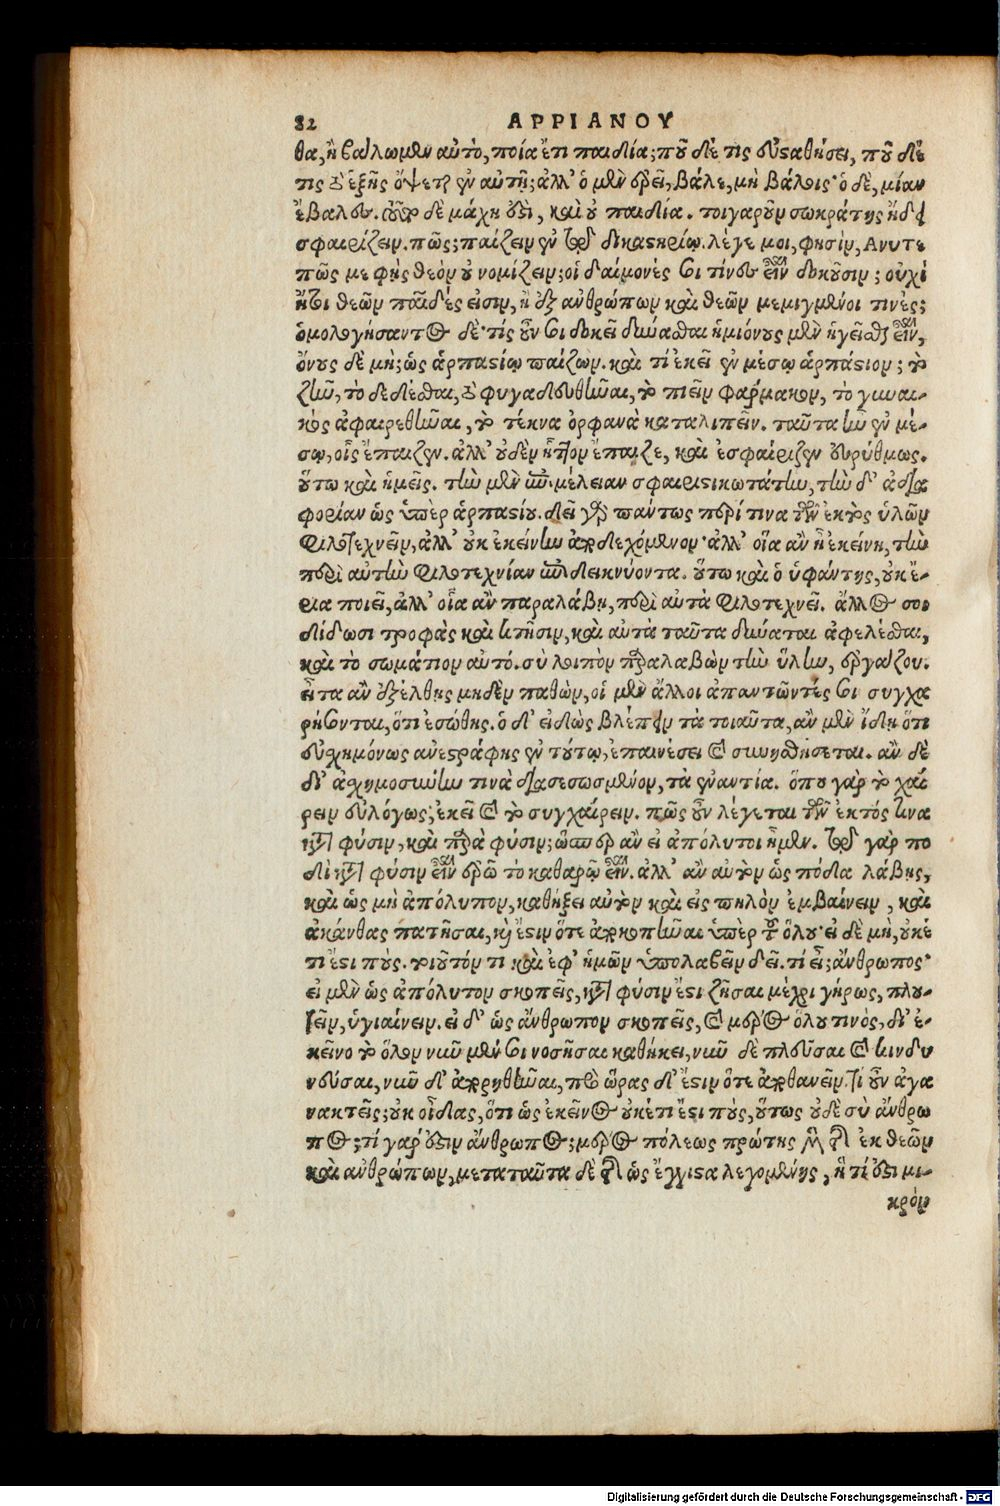 82 ΑΡΡΙΑΝΟΥ
θα, ἢ βάλλωμεν αὐτὸ, ποία ἔτι παιδία; ποῦ δέ τις εὐσταθήσει, ποῦ δέ
τις τὸ ἑξῆς ὄψεται ἐν αὐτῇ; ἀλλ' ὁ μὲν ἐρεῖ, βάλε, μὴ βάλοις· ὁ δὲ, μίαν
ἔβαλες. τοῦτο δὲ μάχη ἐστὶ, καὶ οὐ παιδία. τοιγαροῦν σωκράτης ἤδει
σφαιρίζειν. πῶς; παίζειν ἐν τῷ δικαστηρίῳ. λέγε μοι, φησὶν, Ανυτε
πῶς με φῂς θεὸν οὐ νομίζειν; οἱ δαίμονές σοι τίνες εἶναι δοκοῦσιν; οὐχὶ
ἤτοι θεῶν παῖδές εἰσιν, ἢ ἐξ ἀνθρώπων καὶ θεῶν μεμιγμένοι τινές;
ὁμολογήσαντος δὲ· τίς οὖν σοι δοκεῖ δύνασθαι ἡμιόνους μὲν ἡγεῖσθαι εἶναι,
ὄνους δὲ μή; ὡς ἁρπαστίῳ παίζων. καὶ τί ἐκεῖ ἐν μέσῳ ἁρπάστιον; τὸ
ζῆν, τὸ δεδέσθαι, τὸ φυγαδευθῆναι, τὸ πιεῖν φάρμακον, τὸ γυναι-
κὸς ἀφαιρεθῆναι, τὸ τέκνα ὀρφανὰ καταλιπεῖν. ταῦτα ἦν ἐν μέ-
σῳ, οἷς ἔπαιζεν. ἀλλ' οὐδὲν ἧττον ἔπαιζε, καὶ ἐσφαίριζεν εὐρύθμως.
οὕτω καὶ ἡμεῖς. τὴν μὲν ἐπιμέλειαν σφαιριστικωτάτην, τὴν δ' ἀδια
φορίαν ὡς ὑπὲρ ἁρπαστίου. δεῖ γὰρ πάντως περί τινα τῶν ἐκτὸς ὑλῶν
φιλοτεχνεῖν, ἀλλ' οὐκ ἐκείνην ἀποδεχόμενον· ἀλλ' οἵα ἂν ᾖ ἐκείνη, τὴν
περὶ αὐτὴν φιλοτεχνίαν ἐπιδεικνύοντα. οὕτω καὶ ὁ ὑφάντης, οὐκ ἔ-
ρια ποιεῖ, ἀλλ' οἷα ἂν παραλάβῃ, περὶ αὐτὰ φιλοτεχνεῖ. ἄλλος σοι
δίδωσι τροφὰς καὶ κτῆσιν, καὶ αὐτὰ ταῦτα δύναται ἀφελέσθαι,
καὶ τὸ σωμάτιον αὐτό. σὺ λοιπὸν παραλαβὼν τὴν ὕλην, ἐργάζου.
εἶτα ἂν ἐξέλθῃς μηδὲν παθὼν, οἱ μὲν ἄλλοι ἀπαντῶντές σοι συγχα
ρήσονται, ὅτι ἐσώθης. ὁ δ' εἰδὼς βλέπειν τὰ τοιαῦτα, ἂν μὲν ἴδῃ ὅτι
εὐσχημόνως ἀνεστράφης ἐν τούτῳ, ἐπαινέσει καὶ συνησθήσεται. ἂν δὲ
δι' ἀσχημοσύνην τινὰ διασεσωσμένον, τὰ ἐναντία. ὅπου γὰρ τὸ χαί
ρειν εὐλόγως, ἐκεῖ καὶ τὸ συγχαίρειν. πῶς οὖν λέγεται τῶν ἐκτός τινα
κατὰ φύσιν, καὶ παρὰ φύσιν; ὥσπερ ἂν εἰ ἀπόλυτοι ἦμεν. τῷ γὰρ πο
δὶ κατὰ φύσιν εἶναι ἐρῶ τὸ καθαρῷ εἶναι. ἀλλ' ἂν αὐτὸν ὡς πόδα λάβῃς,
καὶ ὡς μὴ ἀπόλυτον, καθήξει αὐτὸν καὶ εἰς πηλὸν ἐμβαίνειν, καὶ
ἀκάνθας πατῆσαι, καὶ ἔστιν ὅτε ἀποκοπῆναι ὑπὲρ τοῦ ὅλου· εἰ δὲ μὴ, οὐκέ
τι ἔσται πούς. τοιοῦτόν τι καὶ ἐφ' ἡμῶν ὑπολαβεῖν δεῖ. τί εἶ; ἄνθρωπος·
εἰ μὲν ὡς ἀπόλυτον σκοπεῖς, κατὰ φύσιν ἔστι ζῆσαι μέχρι γήρως, πλου-
τεῖν, ὑγιαίνειν. εἰ δ' ὡς ἄνθρωπον σκοπεῖς, καὶ μέρος ὅλου τινὸς, δι' ἐ-
κεῖνο τὸ ὅλον νῦν μέν σοι νοσῆσαι καθήκει, νῦν δὲ πλεῦσαι καὶ κινδυ
νεῦσαι, νῦν δ' ἀπορηθῆναι, πρὸ ὥρας δ' ἔστιν ὅτε ἀποθανεῖν. τί οὖν ἀγα
νακτεῖς; οὐκ οἶδας, ὅτι ὡς ἐκεῖνος οὐκέτι ἔσται πούς, οὕτως οὐδὲ σὺ ἄνθρω
πος; τί γάρ ἐστιν ἄνθρωπος; μέρος πόλεως πρώτης μὲν τῆς ἐκ θεῶν
καὶ ἀνθρώπων, μετὰ ταῦτα δὲ τῆς ὡς ἔγγιστα λεγομένης, ἥ τί ἐστι μι-
κρὸν
Digitalisierung gefördert durch die Deutsche Forschungsgemeinschaft - DFG